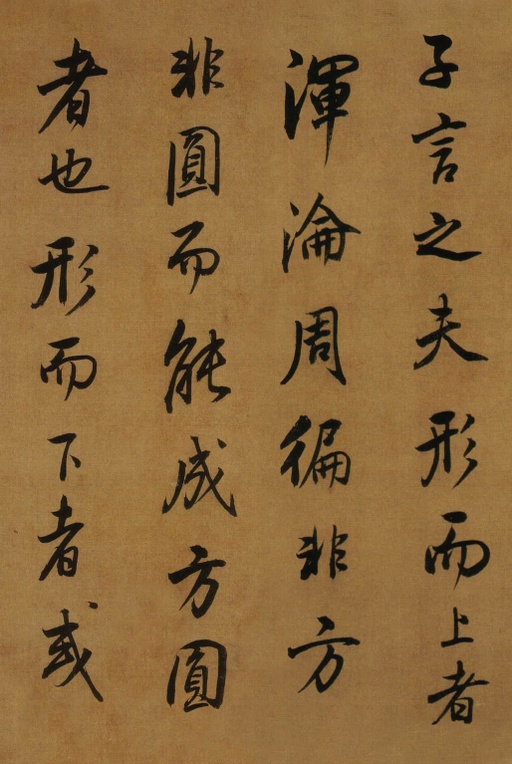 子言之夫形而上者
渾淪周徧非方
非圓而能成方圓
者也形而下者或